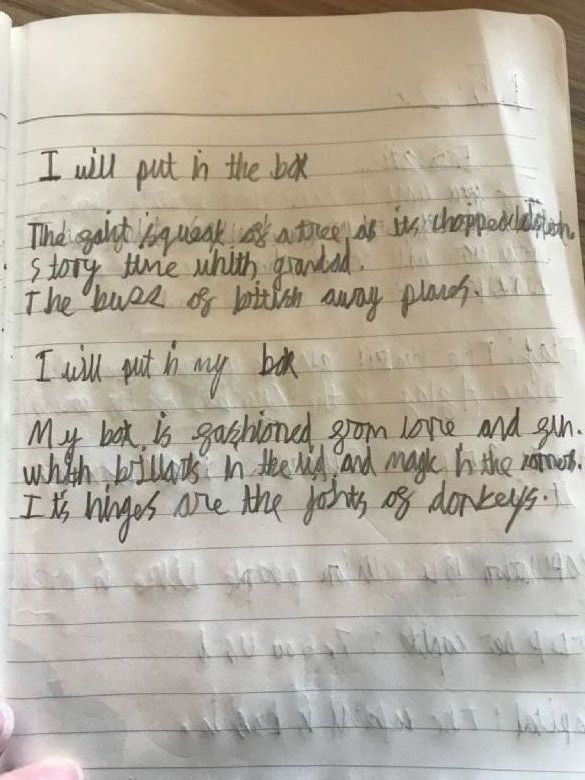 I will put in the box
The gaint squeak of a tree as its chopped
story time whith grandad.
The buzz of away
I will put in my box
My box is gashioned grom love and gun.
whith in the lid and magic in the
It's hinges are the joints of donkeys.